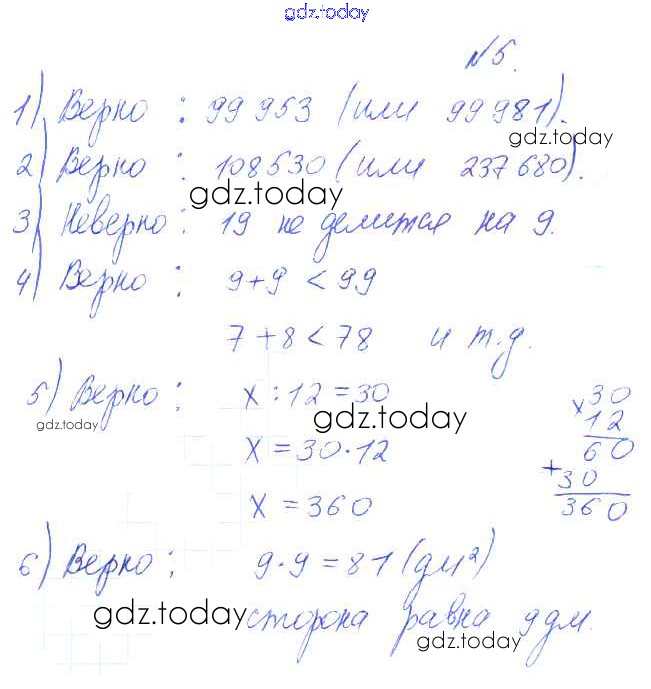 gdz.today
№5.
1) Верно : 99 953 (или 99 981).
gdz.today
2) Верно : 108 530 (или 237 680).
gdz.today
3) Неверно : 19 не делится на 9.
4) Верно : 9+9 < 99
7+8 < 78 и т.д.
5) Верно : x : 12 = 30
gdz.today
gdz.today
x = 30·12
x = 360
× 30
12
60
+ 30
360
6) Верно : 9·9 = 81 (дм²)
gdz.today
сторона равна 9 дм.
gdz.today